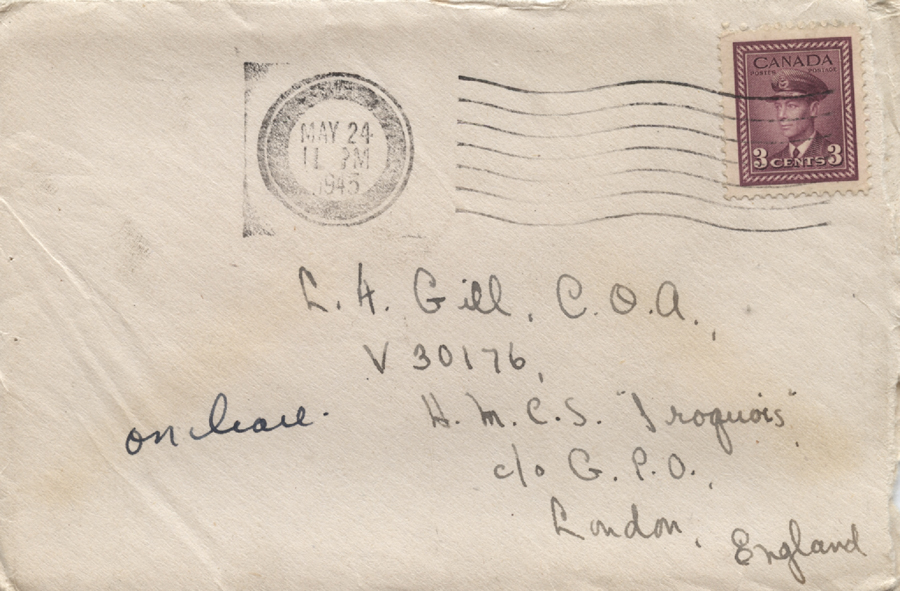 CANADA
POSTES POSTAGE
3 CENTS 3
MAY 24
11 PM
1945
L. H. Gill, C.O.A.,
V 30176,
on leave.
H.M.C.S. "Iroquois"
c/o G.P.O.,
London,
England